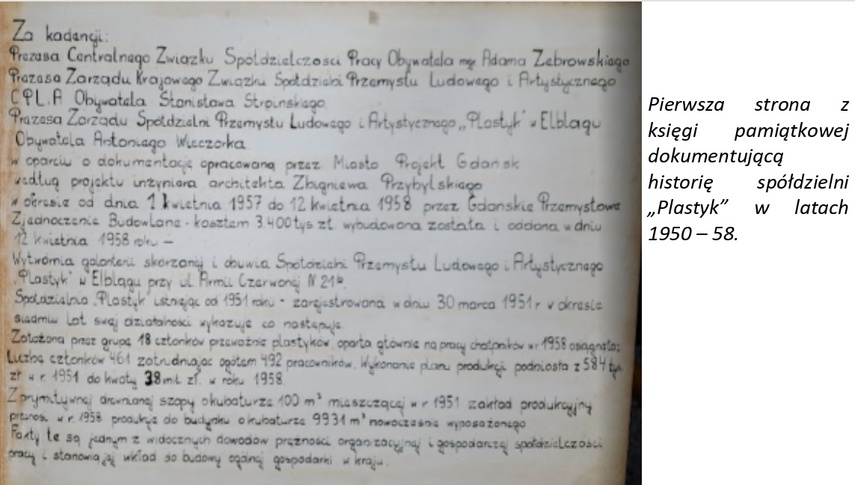 Za kadencji:
Prezesa Centralnego Związku Spółdzielczości Pracy Obywatela mgr Adama Żebrowskiego
Prezesa Zarządu Krajowego Związku Spółdzielni Przemysłu Ludowego i Artystycznego
CPLiA Obywatela Stanisława Stroińskiego
Prezesa Zarządu Spółdzielni Przemysłu Ludowego i Artystycznego „Plastyk” w Elblągu
Obywatela Antoniego Wieczorka
w oparciu o dokumentację opracowaną przez Miasto Projekt Gdańsk
według projektu inżyniera architekta Zbigniewa Przybylskiego
w okresie od dnia 1 kwietnia 1957 do 12 kwietnia 1958 przez Gdańskie Przemysłowe
Zjednoczenie Budowlane - kosztem 3.400 tys zł. wybudowana została i oddana w dniu
12 kwietnia 1958 roku —
Wytwórnia galanterii skórzanej i obuwia Spółdzielni Przemysłu Ludowego i Artystycznego
„Plastyk” w Elblągu przy ul. Armii Czerwonej N 21
Spółdzielnia „Plastyk” istniejąc od 1951 roku - zarejestrowana w dniu 30 marca 1951 r w okresie
siedmiu lat swej działalności wykazuje co następuje
Założona przez grupę 18 członków przeważnie plastyków, oparta głównie na pracy chałpników w r. 1958 osiągnęła:
Liczbę członków 461 zatrudniając ogółem 492 pracowników. Wykonanie planu produkcji podniosła z 584 tys.
zł w r. 1951 do kwoty 38 mil. zł. w roku 1958.
Z prymitywnej drewnianej szopy o kubaturze 100 m³ mieszczącej w r 1951 zakład produkcyjny
przenosi w r. 1958 produkcję do budynku o kubaturze 9931 m³ nowocześnie wyposażonego
Fakty te są jednym z widocznych dowodów prężności organizacyjnej i gospodarczej spółdzielczości
pracy i stanowią jej wkład do budowy ogólnej gospodarki w kraju.
Pierwsza strona z
księgi pamiątkowej
dokumentującą
historię spółdzielni
„Plastyk” w latach
1950 – 58.